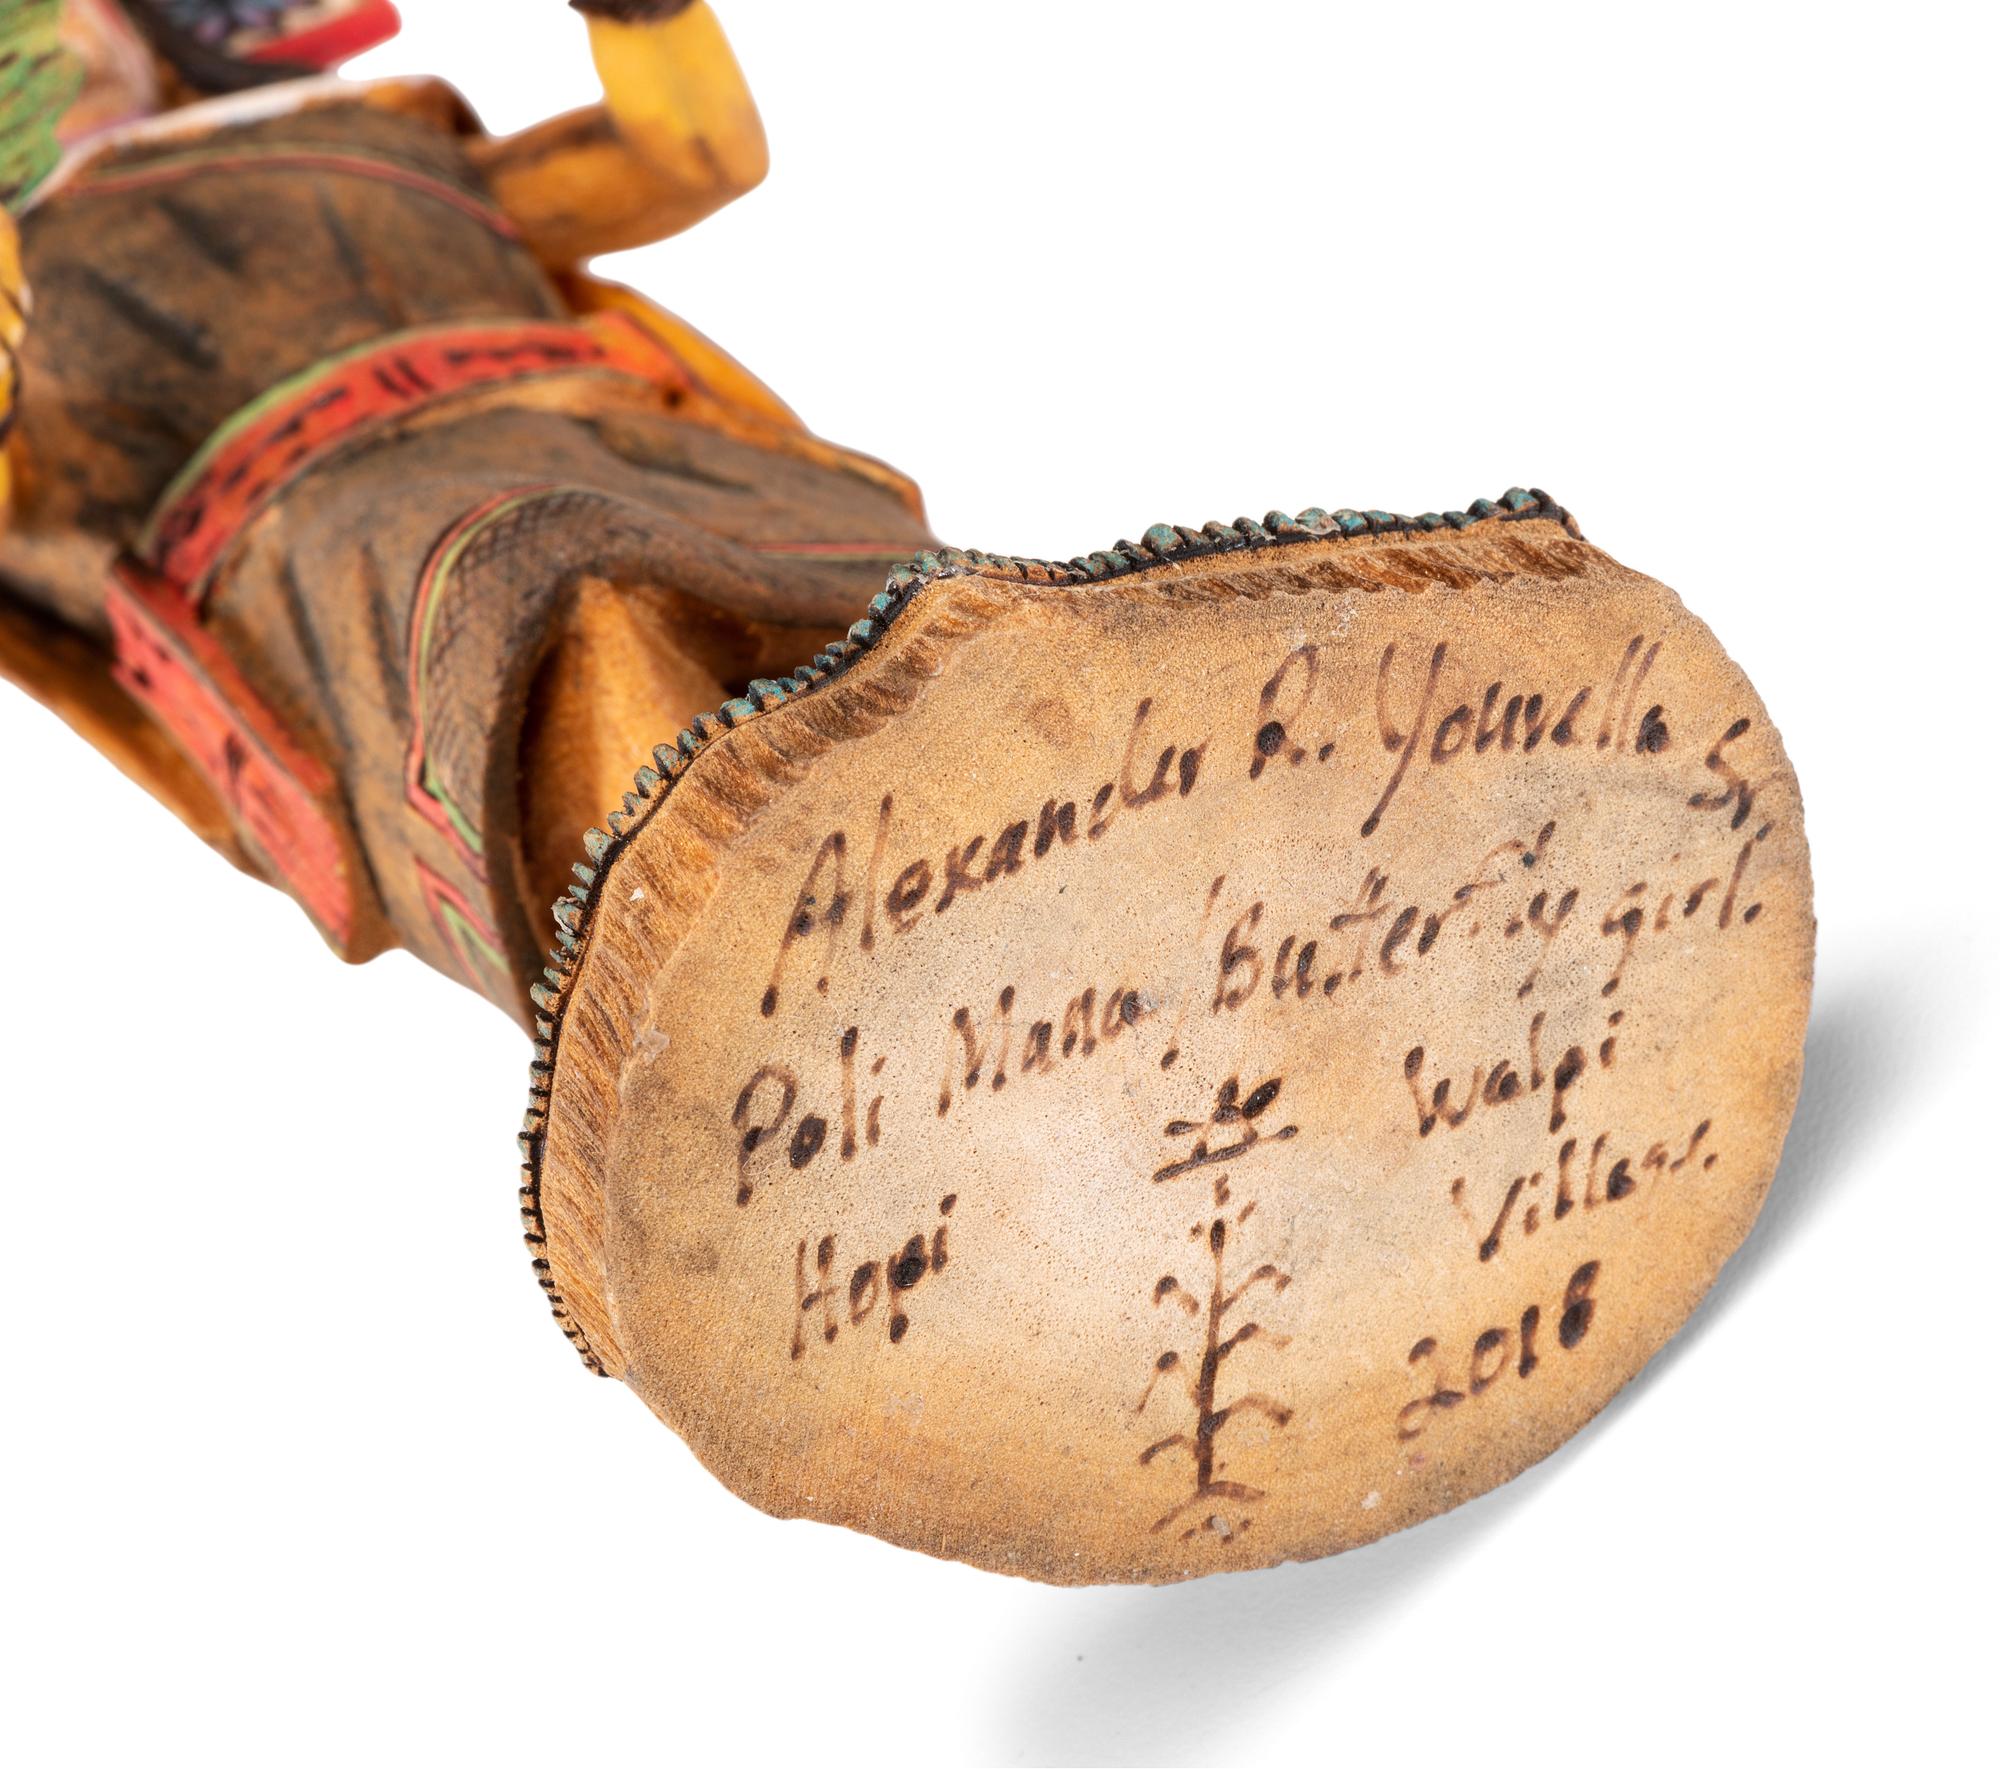 Alexander R. Youvella Sr.
Poli Mana / Butterfly girl.
Hopi
Walpi
Village.
2018